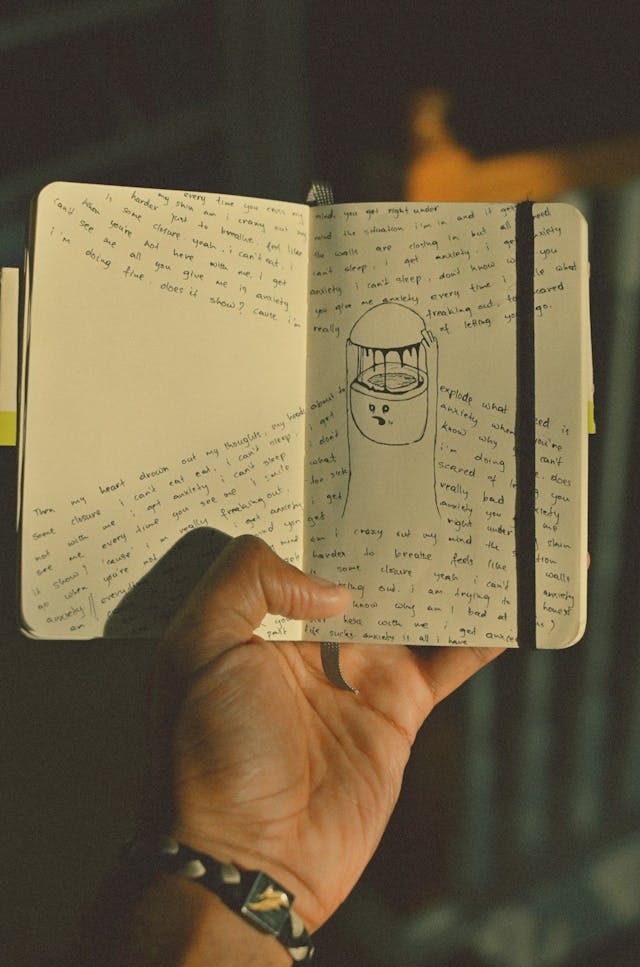 every time you cross my
my skin am i crazy out my
is harder just to breathe. feel like
some closure. yeah. i can't eat, i
can't when you're not here with me. I get
see me all you give me is anxiety
i'm doing fine. does it show? cause i'm
Then my heart drown out my thoughts. my head
some closure i can't eat eat. i can't sleep.
not with me i get anxiety i can't sleep
see me every time you see me i smile
it show? 'cause i'm really freaking out.
so when you're not i get anxiety
anxiety
am
mind. you get right under
mind the situation i'm in and it gets
the walls are closing in. but all i need
can't sleep. i get anxiety. i get anxiety
anxiety i can't sleep. don't know why you
you give me anxiety every time i smile what
really freaking out. to scared
of letting you go.
about to explode what i need is
i get anxiety when you're
i don't know why i can't
what i'm doing does
for sick scared of you
i get really bad anxiety
get right under skin
am i crazy out my mind the situation
harder to breathe feels like walls
is some closure yeah i can't
out. i am trying to anxiety
know why am I bad at honest
here with me i get
life sucks anxiety is all i have